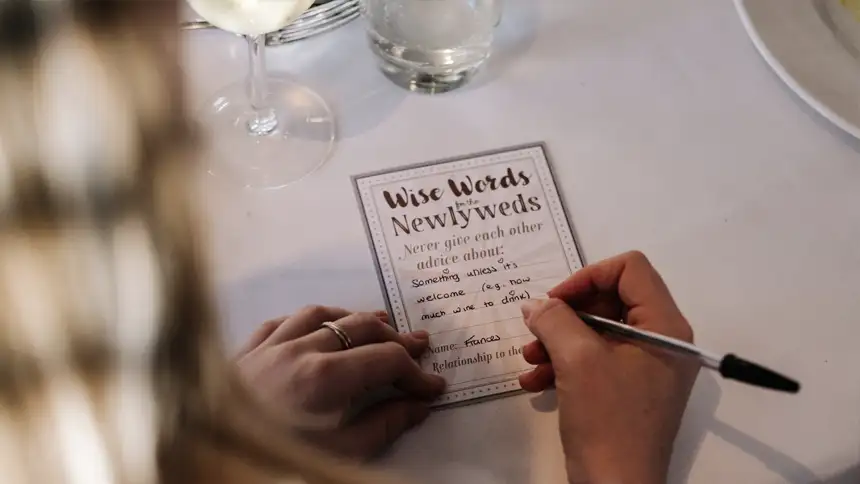 Wise Words
for the
Newlyweds
Never give each other
advice about:
Something unless it's
welcome (e.g. how
much wine to drink)
Name: Frances
Relationship to the